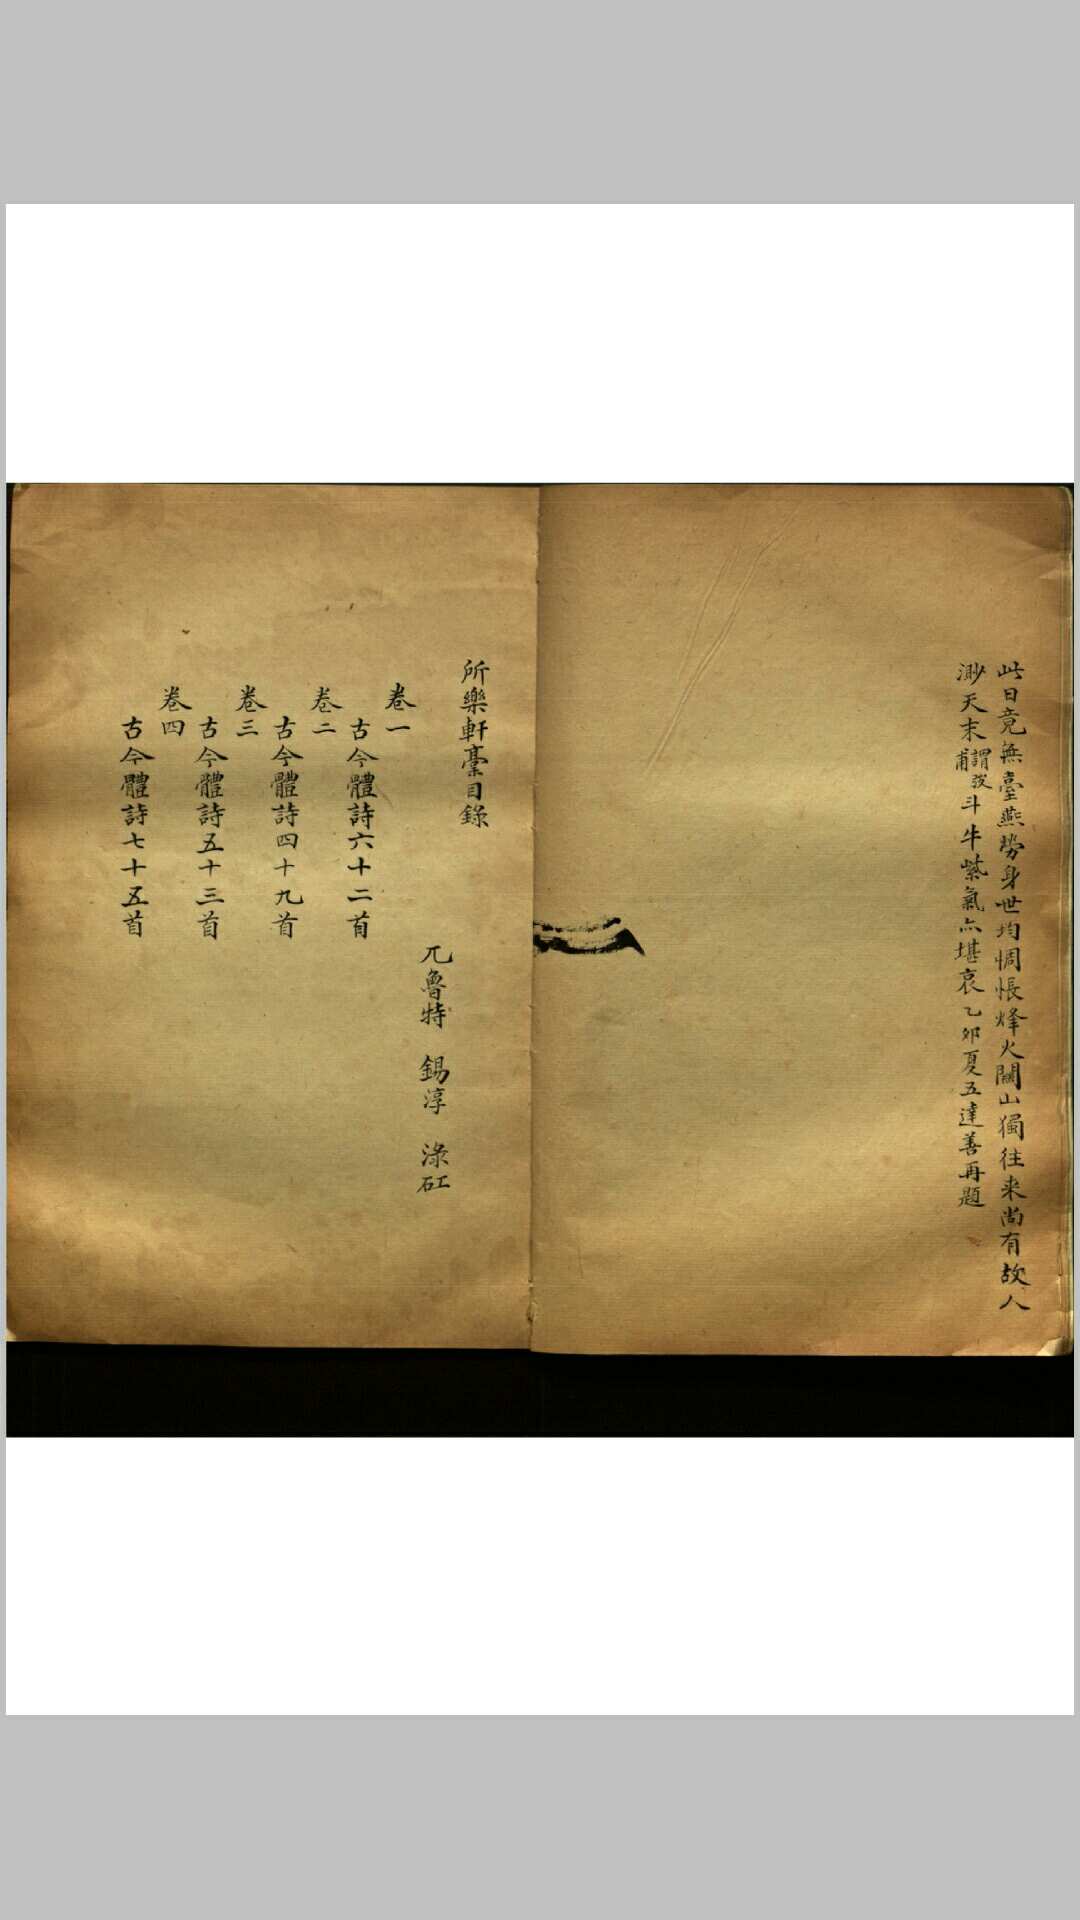 此日竟無臺燕勞身世均惆悵烽火關山獨往来尚有故人
渺天末謂弢甫斗牛紫氣亦堪哀乙卯夏五達善再題
所樂軒藁目錄
兀魯特　錫淳　淥矼
卷一
古今體詩六十二首
卷二
古今體詩四十九首
卷三
古今體詩五十三首
卷四
古今體詩七十五首